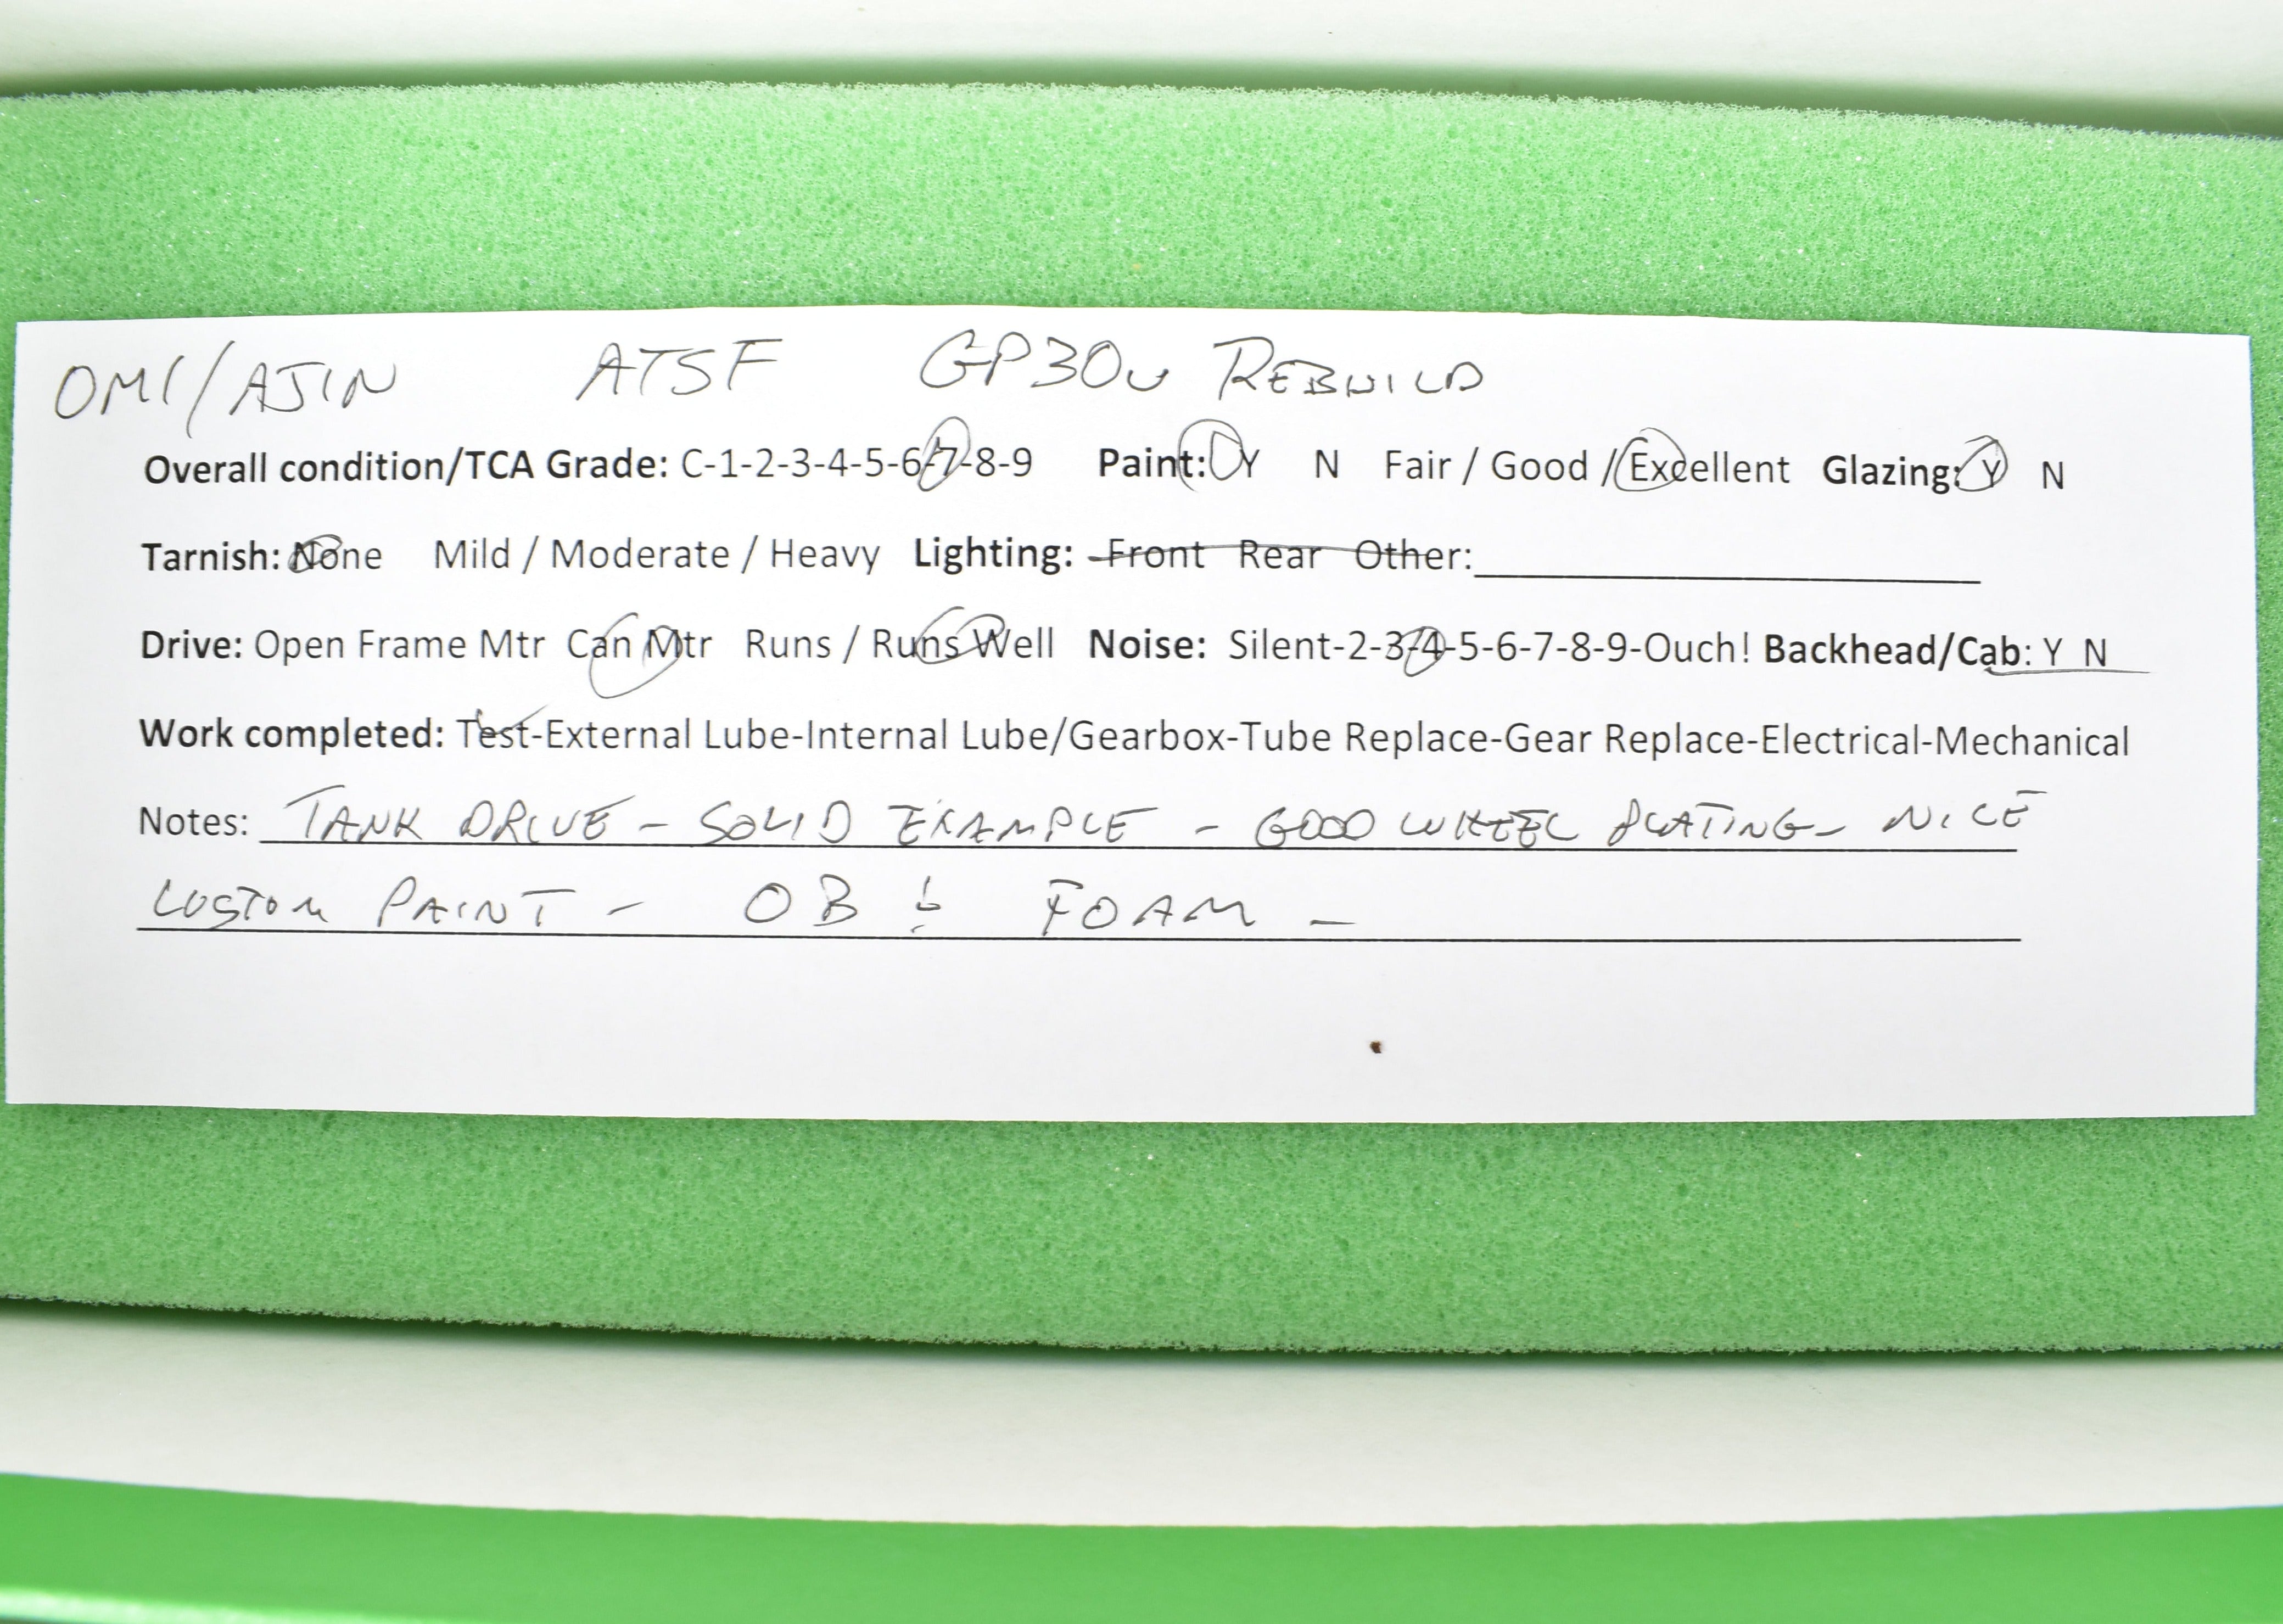 OMI/AJIN ATSF GP30u REBUILD
Overall condition/TCA Grade: C-1-2-3-4-5-6-7-8-9 Paint: Y N Fair / Good / Excellent Glazing: Y N
Tarnish: None Mild / Moderate / Heavy Lighting: Front Rear Other:
Drive: Open Frame Mtr Can Mtr Runs / Runs Well Noise: Silent-2-3-4-5-6-7-8-9-Ouch! Backhead/Cab: Y N
Work completed: Test-External Lube-Internal Lube/Gearbox-Tube Replace-Gear Replace-Electrical-Mechanical
Notes: TANK DRIVE - SOLID EXAMPLE - GOOD WHEEL PLATING - NICE
CUSTOM PAINT - OB & FOAM -